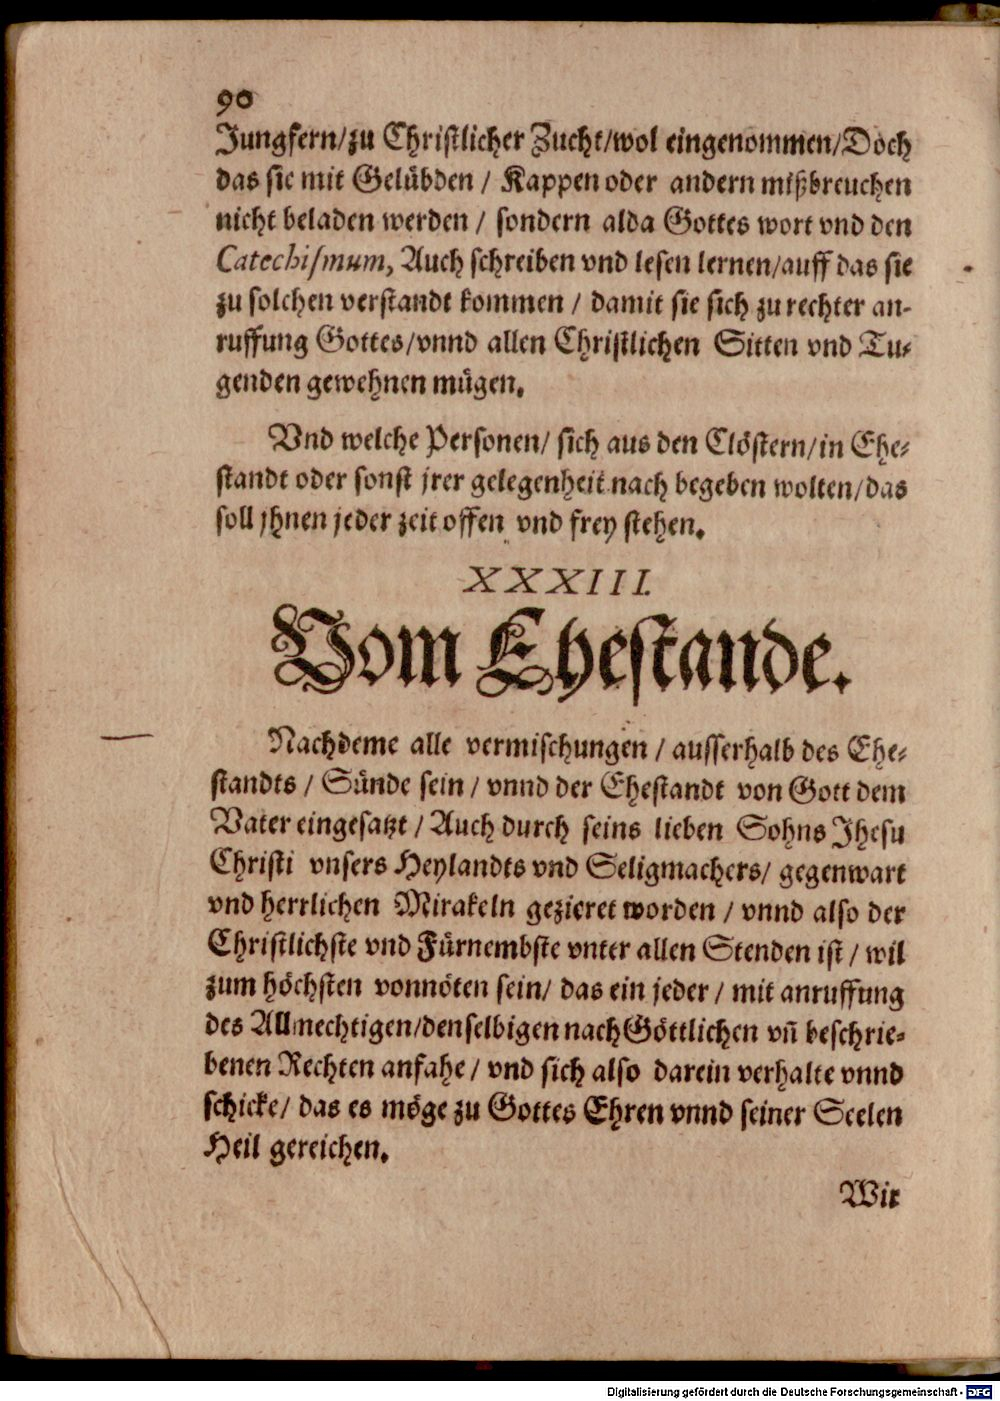 90
Jungfern/zu Christlicher Zucht/wol eingenommen/Doch
das sie mit Gelübden / Kappen oder andern mißbreuchen
nicht beladen werden / sondern alda Gottes wort vnd den
Catechismum, Auch schreiben vnd lesen lernen/auff das sie
zu solchen verstandt kommen / damit sie sich zu rechter an-
ruffung Gottes/vnnd allen Christlichen Sitten vnd Tu-
genden gewehnen mügen.
Vnd welche Personen/ sich aus den Clöstern/in Ehe-
standt oder sonst jrer gelegenheit nach begeben wolten/das
soll jhnen jeder zeit offen vnd frey stehen.
XXXIII.
Vom Ehestande.
Nachdeme alle vermischungen / ausserhalb des Ehe-
standts / Sünde sein / vnnd der Ehestandt von Gott dem
Vater eingesatzt / Auch durch seins lieben Sohns Jhesu
Christi vnsers Heylandts vnd Seligmachers/ gegenwart
vnd herrlichen Mirakeln gezieret worden / vnnd also der
Christlichste vnd Fürnembste vnter allen Stenden ist / wil
zum höchsten vonnöten sein/ das ein jeder / mit anruffung
des Allmechtigen/denselbigen nach Göttlichen vñ beschrie-
benen Rechten anfahe / vnd sich also darein verhalte vnnd
schicke/ das es möge zu Gottes Ehren vnnd seiner Seelen
Heil gereichen.
Wir
Digitalisierung gefördert durch die Deutsche Forschungsgemeinschaft - DFG